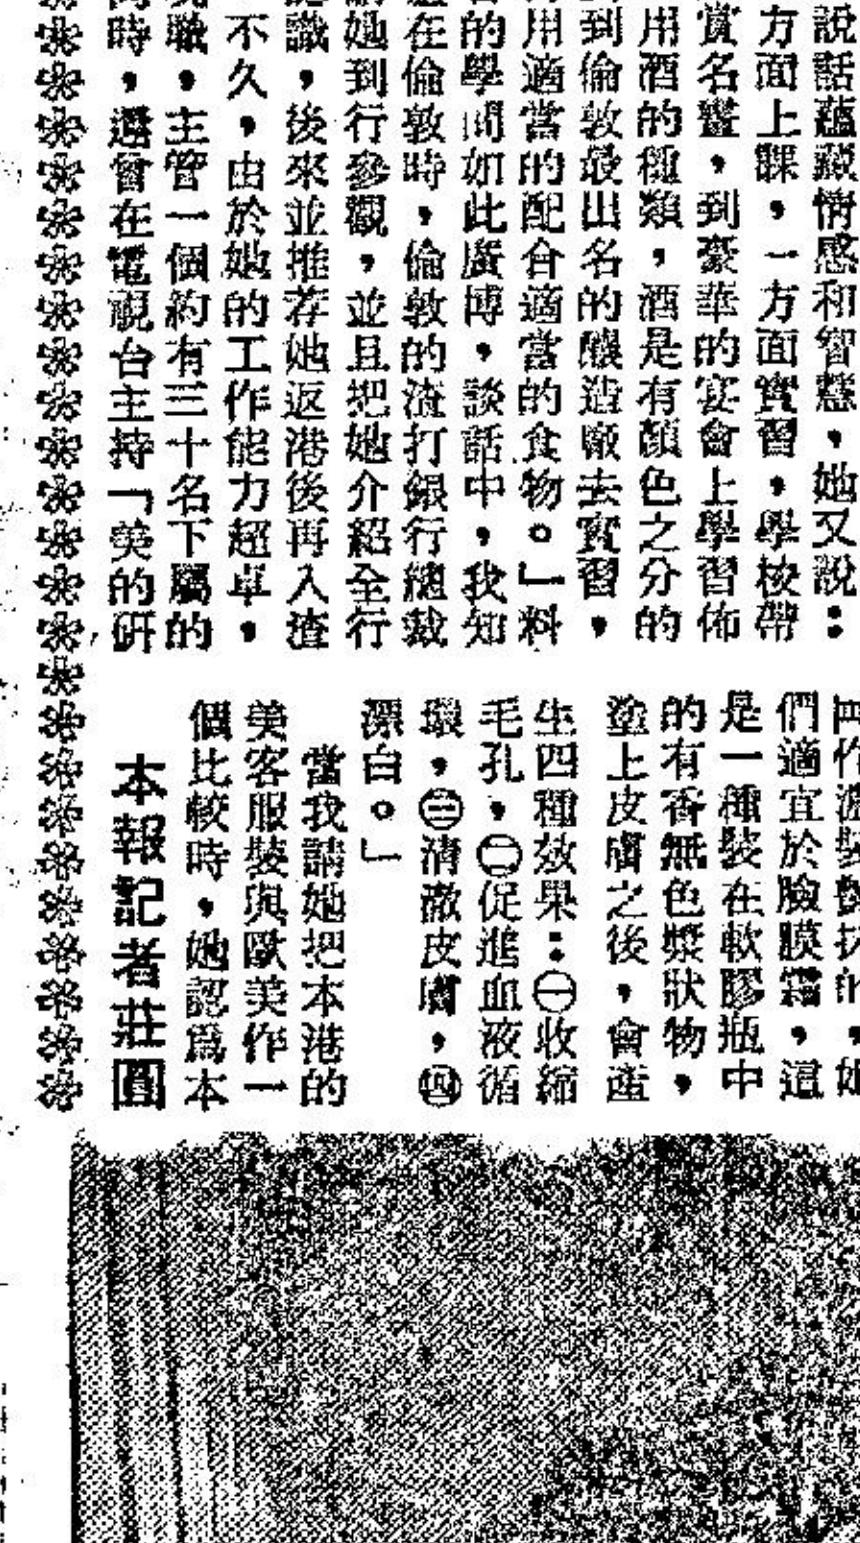 說話蘊藏情感和智慧，她又說：
方面上課，一方面實習，學校帶
賞名畫，到豪華的宴會上學習佈
用酒的種類，酒是有顏色之分的
到倫敦最出名的釀造廠去實習，
用適當的配合適當的食物。」料
的學問如此廣博，談話中，我知
在倫敦時，倫敦的渣打銀行總裁
她到行參觀，並且把她介紹全行
識，後來並推荐她返港後再入渣
不久，由於她的工作能力超卓，
職，主管一個約有三十名下屬的
時，還曾在電視台主持「美的研
們適宜於臉膜霜，這
是一種裝在軟膠瓶中
的有香無色漿狀物，
塗上皮膚之後，會產
生四種效果：㊀收縮
毛孔，㊁促進血液循
環，㊂清澈皮膚，㊃
漂白。」
當我請她把本港的
美容服裝與歐美作一
個比較時，她認爲本
本報記者莊圓